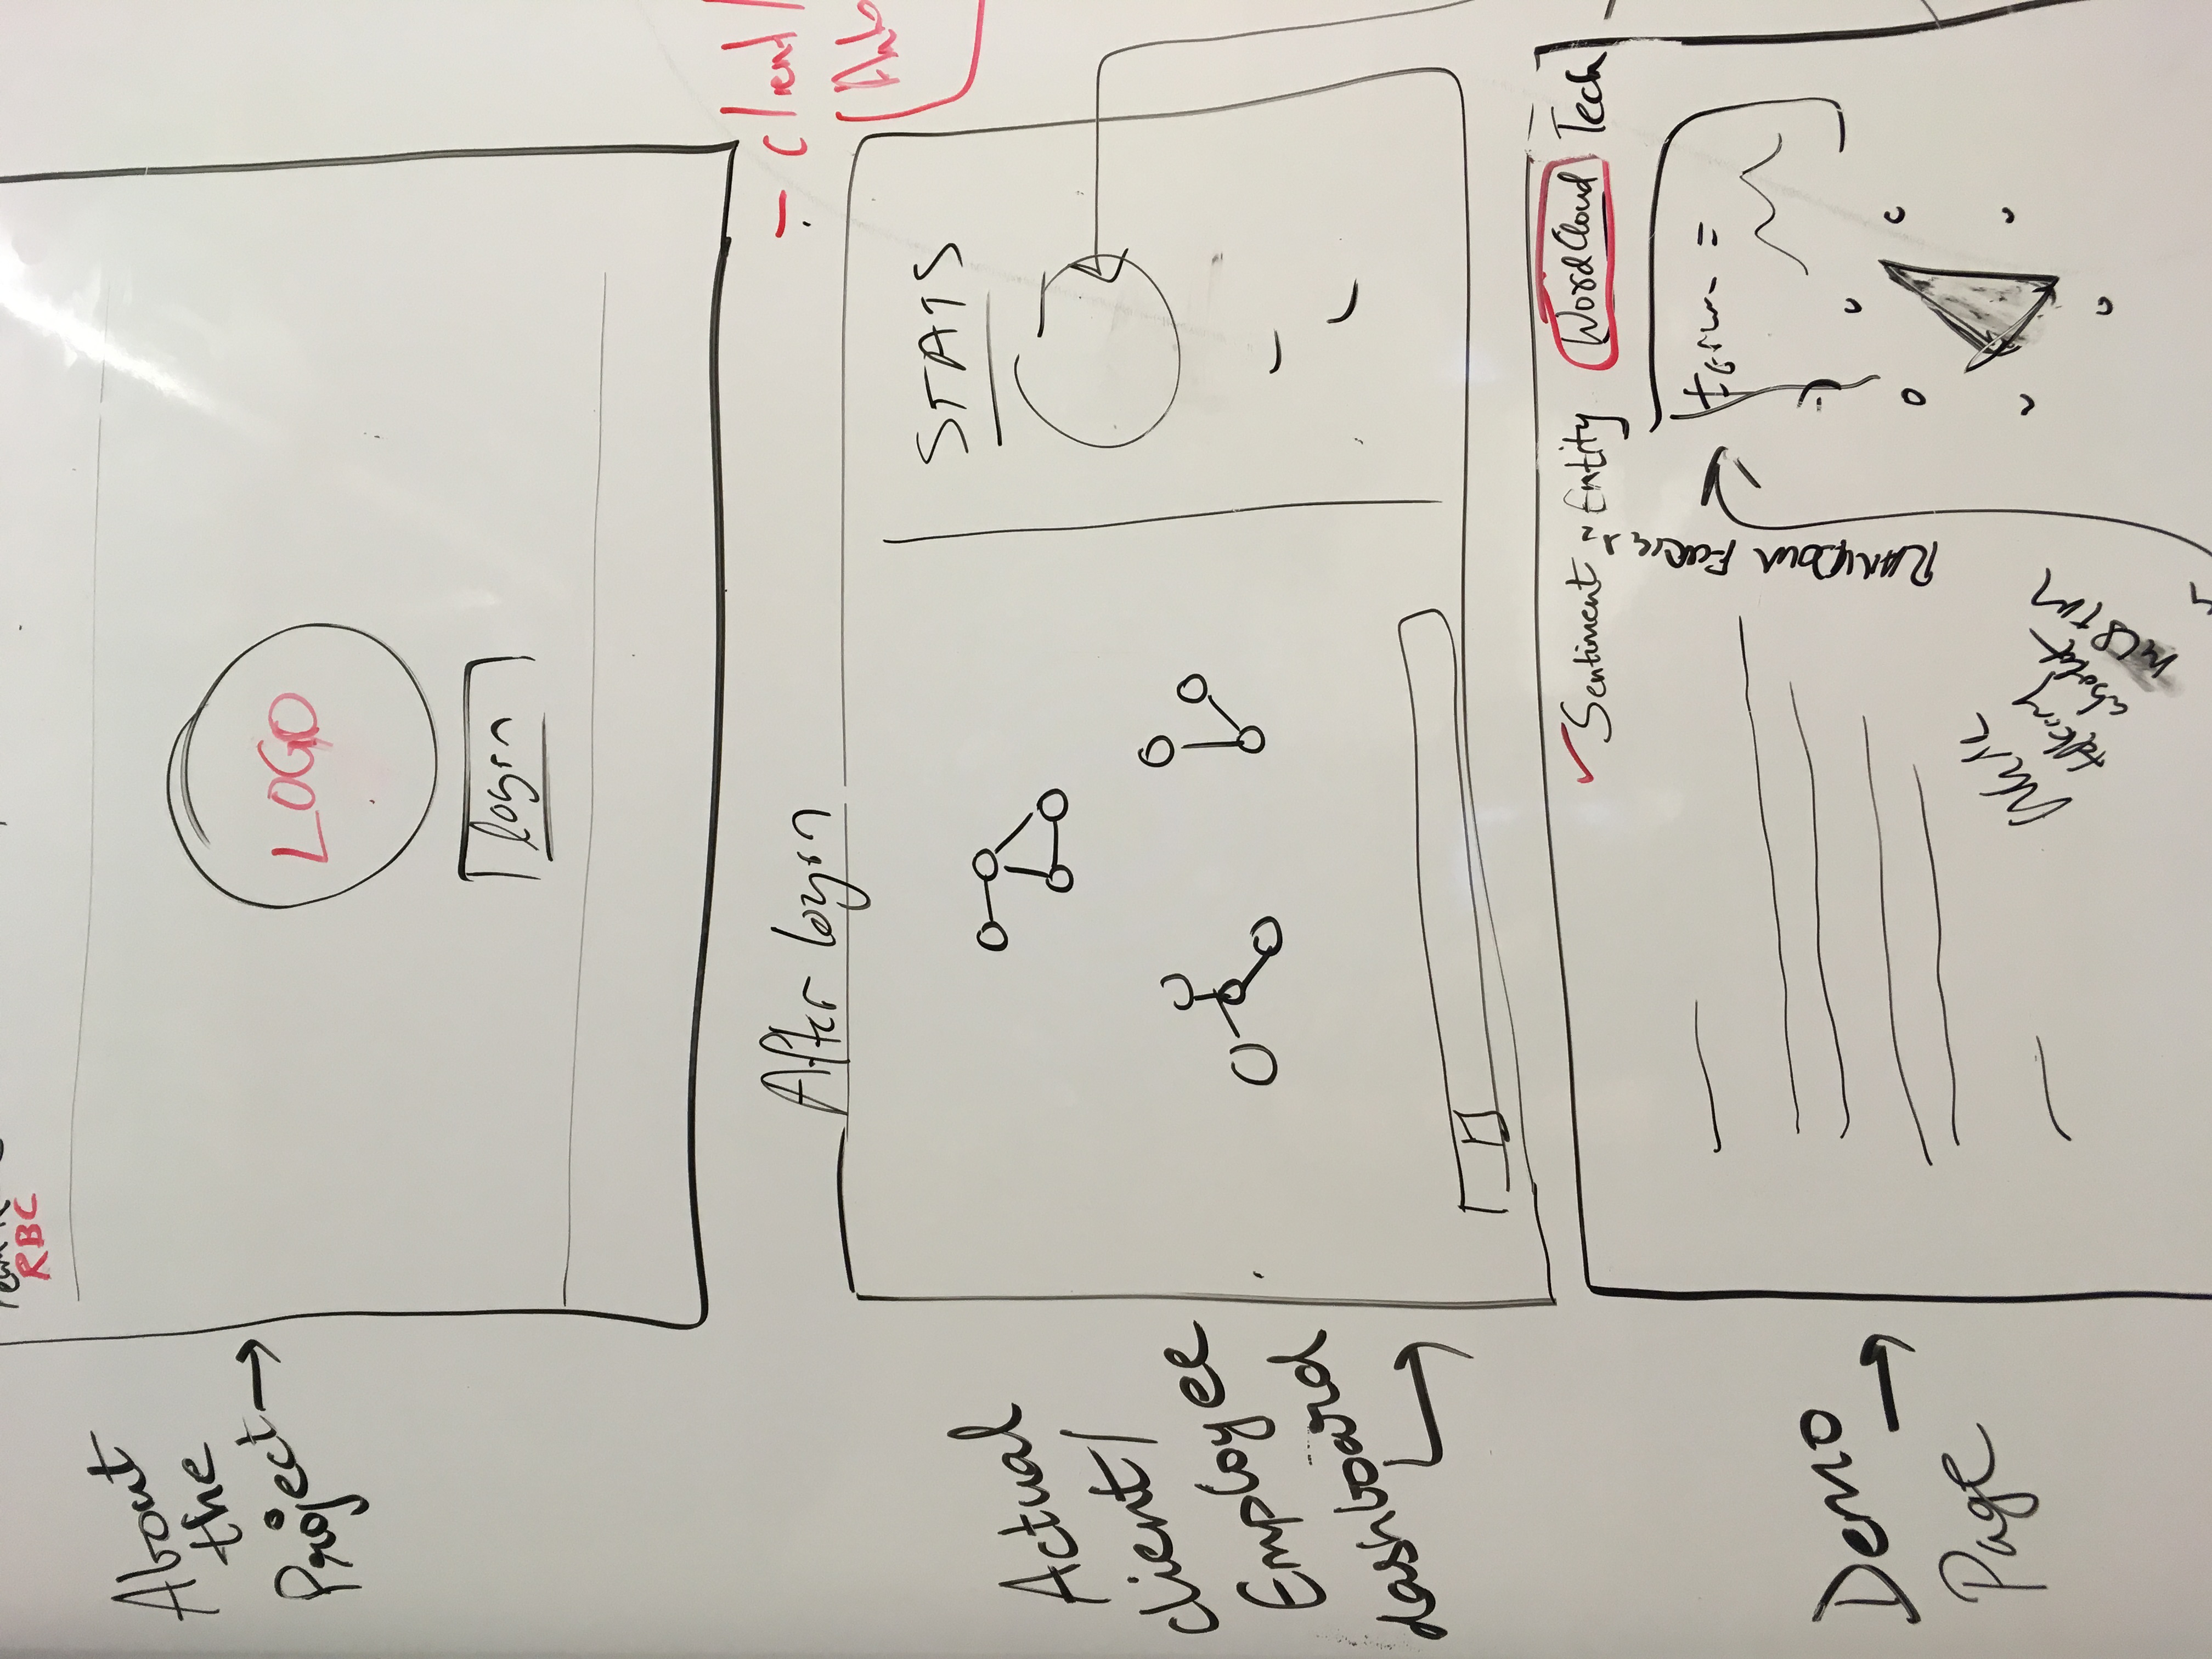 RBC
About
the
Project
LOGO
login
After login
- client/
Actual
client/
Employee
dashboard
STATS
✓ Sentiment Entity WordCloud Tech
RANDOM FOREST
Demo
Page
while
talking
about